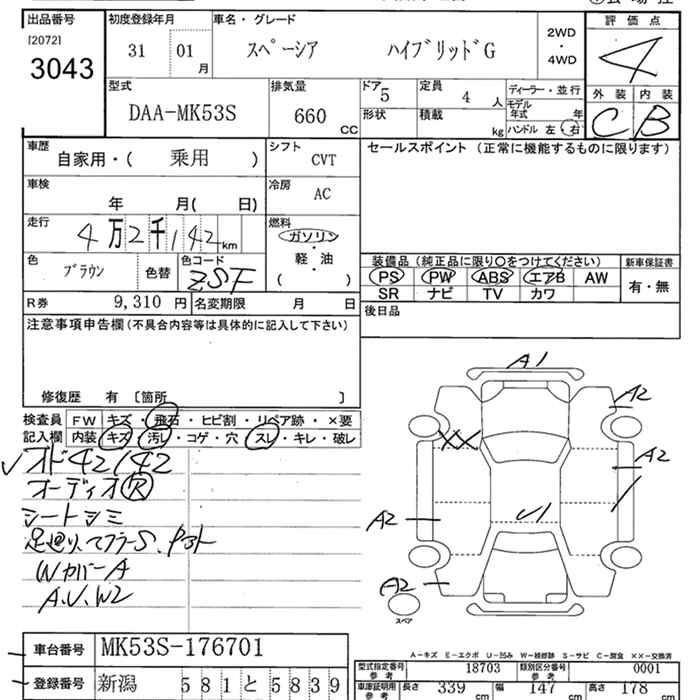 出品番号 初度登録年月 車名・グレード 評価点
[2072]
3043 31 01 月 スペーシア ハイブリッドG 2WD・4WD 4
型式 排気量 ドア 5 定員 4 人 ディーラー・並行 外装 内装
DAA-MK53S 660 CC 形状 積載 kg モデル年式 年 C B
ハンドル 左・右
車歴 自家用・( 乗用 ) シフト CVT セールスポイント (正常に機能するものに限ります)
車検 年 月( 日) 冷房 AC
走行 4万2千142km 燃料 ガソリン・軽・油 ( )
色 ブラウン 色替 色コード ZSF 装備品 (純正品に限り○をつけてください) 新車保証書
PS PW ABS エアB AW 有・無
SR ナビ TV カワ
R券 9,310 円 名変期限 月 日 後日品
注意事項申告欄 (不具合内容等は具体的に記入して下さい)
修復歴 有 〔箇所 〕
検査員 FW キズ・飛石・ヒビ割・リペア跡・×要
記入欄 内装 キズ・汚レ・コゲ・穴・スレ・キレ・破レ
オド42142
オーディオR
シートシミ
足廻り、マフラーS、
WカバーA
A.U.W2
A1
A2
XX
A2
A2
U1
A2
スペア
車台番号 MK53S-176701
登録番号 新潟 581 と 5839
A-キズ E-エクボ U-凹み W-補修跡 S-サビ C-腐食 XX-交換済
型式指定番号 参考 18703 類別区分番号 参考 0001
車庫証明用 参考 長さ 339 cm 幅 147 cm 高さ 178 cm